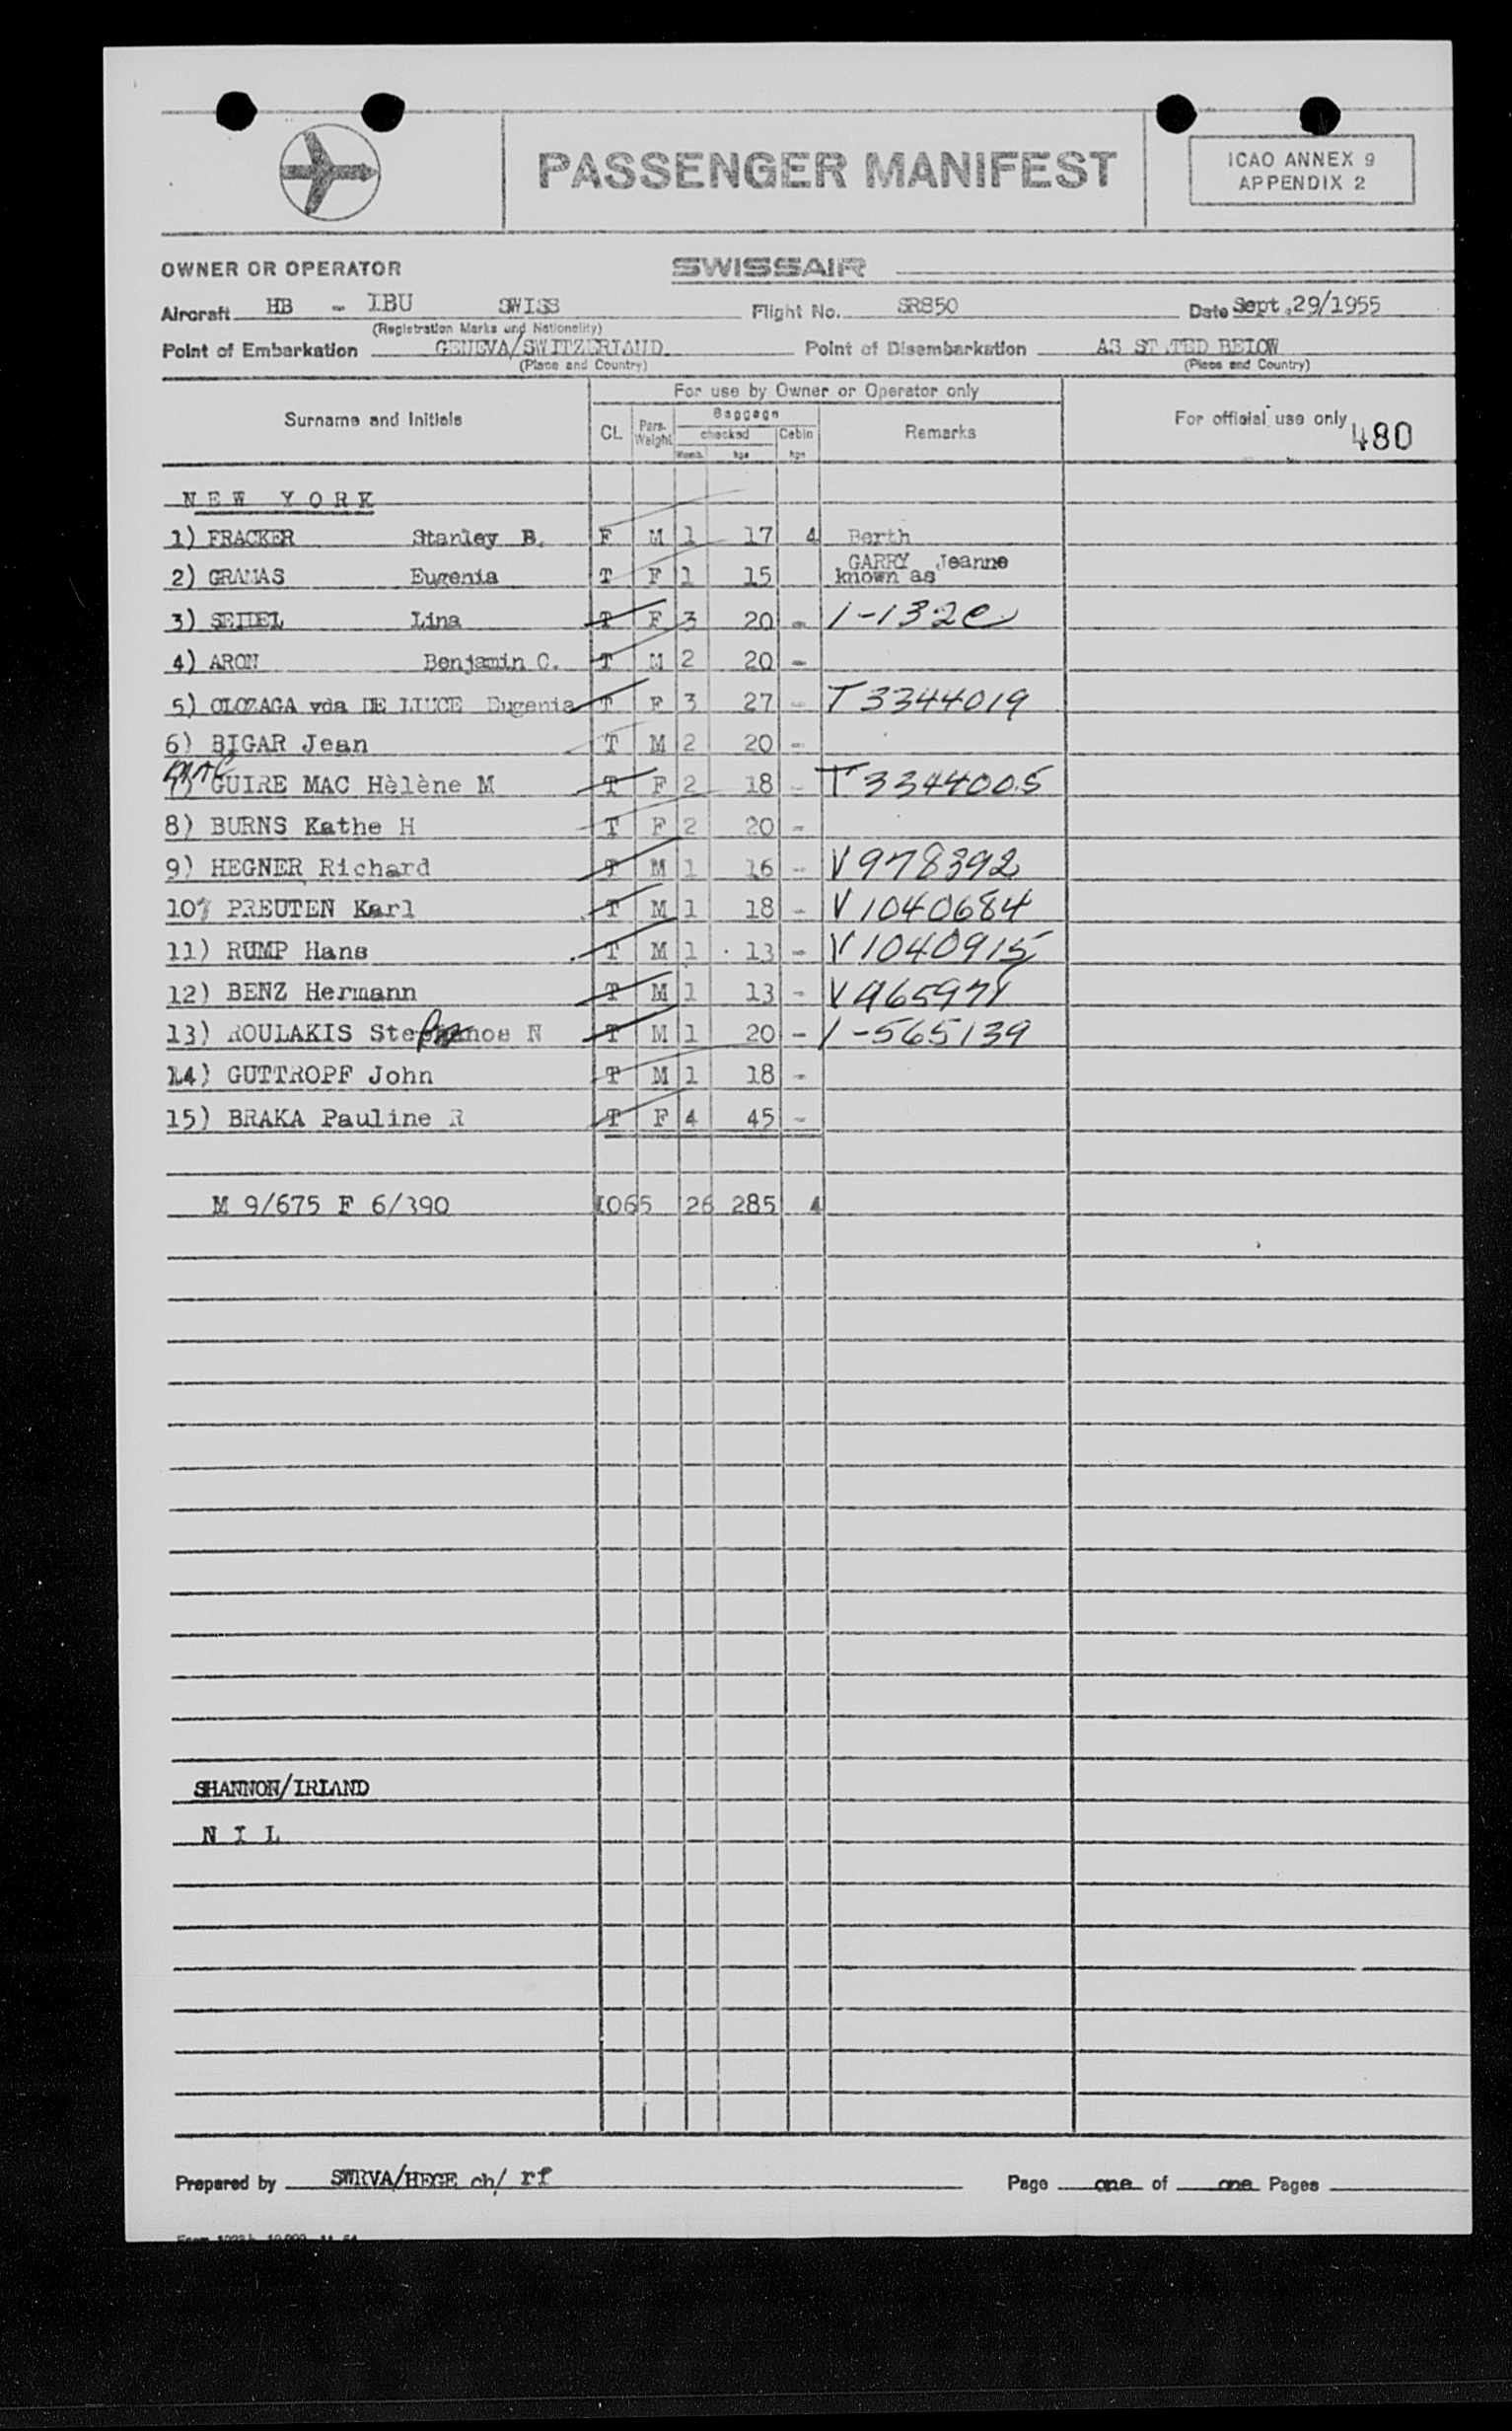 PASSENGER MANIFEST
ICAO ANNEX 9
APPENDIX 2
OWNER OR OPERATOR SWISSAIR
Aircraft HB - IBU SWISS Flight No. SR850 Date Sept.29/1955
(Registration Marks and Nationality)
Point of Embarkation GENEVA/SWITZERLAND Point of Disembarkation AS ST.TED BELOW
(Place and Country) (Place and Country)
For use by Owner or Operator only
Surname and Initials CL Pass. Weight Baggage checked Cabin Remarks For official use only 480
Numb. kgs kgs
NEW YORK
1) FRACKER Stanley B. F M 1 17 4 Berth
2) GRAMAS Eugenia T F 1 15 GARRY Jeanne known as
3) SEIDEL Lina T F 3 20 - 1-132c
4) ARON Benjamin C. T M 2 20 -
5) OLOZAGA vda DE LIUCE Eugenia T F 3 27 - T3344019
6) BIGAR Jean T M 2 20 -
7) MAC GUIRE MAC Hèlène M T F 2 18 - T3344005
8) BURNS Kathe H T F 2 20 -
9) HEGNER Richard T M 1 16 - V978392
10) PREUTEN Karl T M 1 18 - V1040684
11) RUMP Hans T M 1 13 - V1040915
12) BENZ Hermann T M 1 13 - V965971
13) ROULAKIS Stephanos N T M 1 20 - 1-565139
14) GUTTROPF John T M 1 18 -
15) BRAKA Pauline R T F 4 45 -
M 9/675 F 6/390 1065 26 285 4
SHANNON/IRLAND
NIL
Prepared by SWRVA/HEGE ch/ rf Page one of one Pages